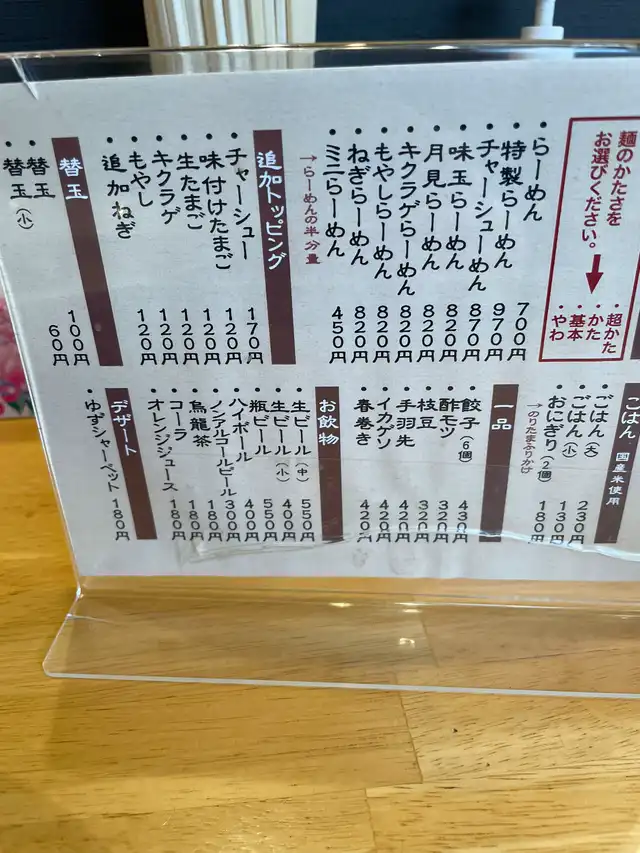 麺のかたさを
お選びください。
→
・超かた
・かた
・基本
・やわ
・らーめん 700円
・特製らーめん 970円
・チャーシューめん 870円
・味玉らーめん 820円
・月見らーめん 820円
・キクラゲらーめん 820円
・もやしらーめん 820円
・ねぎらーめん 820円
・ミニらーめん 450円
→らーめんの半分量
追加トッピング
・チャーシュー 170円
・味付けたまご 120円
・生たまご 120円
・キクラゲ 120円
・もやし 120円
・追加ねぎ 120円
替玉
・替玉 100円
・替玉(小) 60円
ごはん 国産米使用
・ごはん(大) 230円
・ごはん(小) 130円
・おにぎり(2個) 180円
→のりたまふりかけ
一品
・餃子(6個) 430円
・酢モツ 320円
・枝豆 320円
・手羽先 420円
・イカゲソ 420円
・春巻き 420円
お飲物
・生ビール(中) 550円
・生ビール(小) 400円
・瓶ビール 550円
・ハイボール 400円
・ノンアルコールビール 300円
・烏龍茶 180円
・コーラ 180円
・オレンジジュース 180円
デザート
・ゆずシャーベット 180円